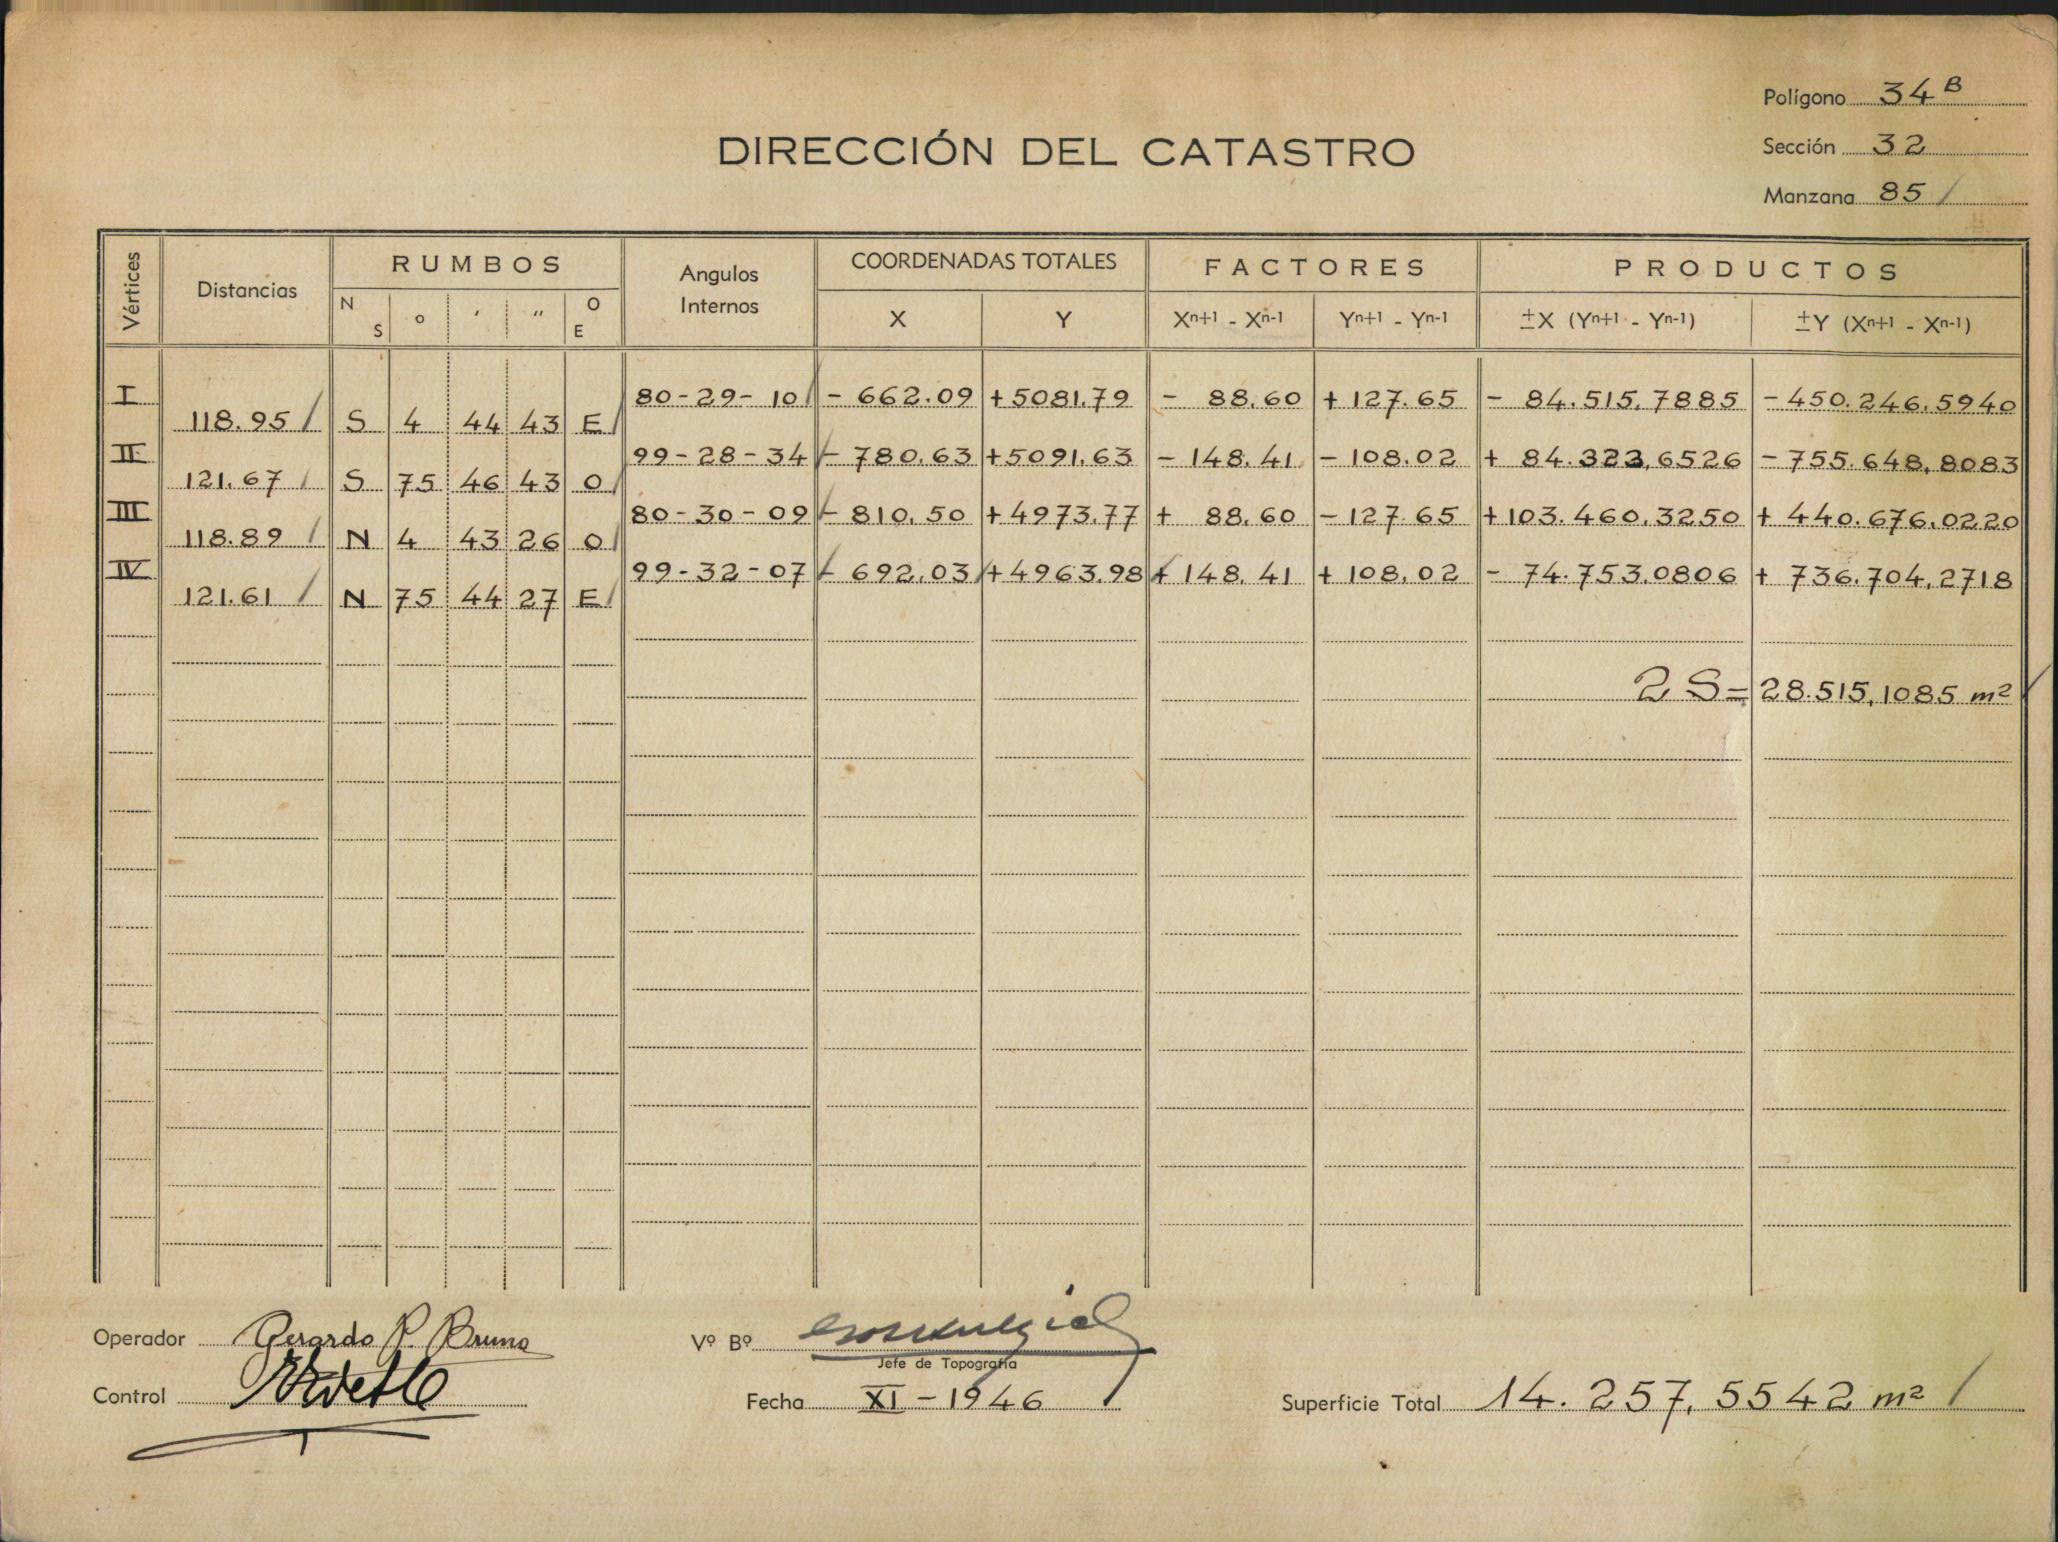 Polígono 34 B
DIRECCIÓN DEL CATASTRO
Sección 32
Manzana 85 /
Vértices Distancias RUMBOS Angulos Internos COORDENADAS TOTALES FACTORES PRODUCTOS
N S ° ' " O E X Y Xn+1 - Xn-1 Yn+1 - Yn-1 ±X (Yn+1 - Yn-1) ±Y (Xn+1 - Xn-1)
I 80-29-10 / - 662.09 +5081.79 - 88.60 + 127.65 - 84.515,7885 - 450.246,5940
118.95 / S 4 44 43 E /
II 99-28-34 / - 780.63 +5091.63 - 148.41 - 108.02 + 84.323,6526 - 755.648,8083
121.67 / S 75 46 43 O /
III 80-30-09 / - 810.50 +4973.77 + 88.60 - 127.65 +103.460,3250 + 440.676,0220
118.89 / N 4 43 26 O /
IV 99-32-07 / - 692.03 / +4963.98 / + 148.41 + 108.02 - 74.753,0806 + 736.704,2718
121.61 / N 75 44 27 E /
2 S = 28.515,1085 m² /
Operador Gerardo P. Bruno
Vº Bº
Jefe de Topografía
Control
Fecha XI - 1946
Superficie Total 14.257,5542 m² /